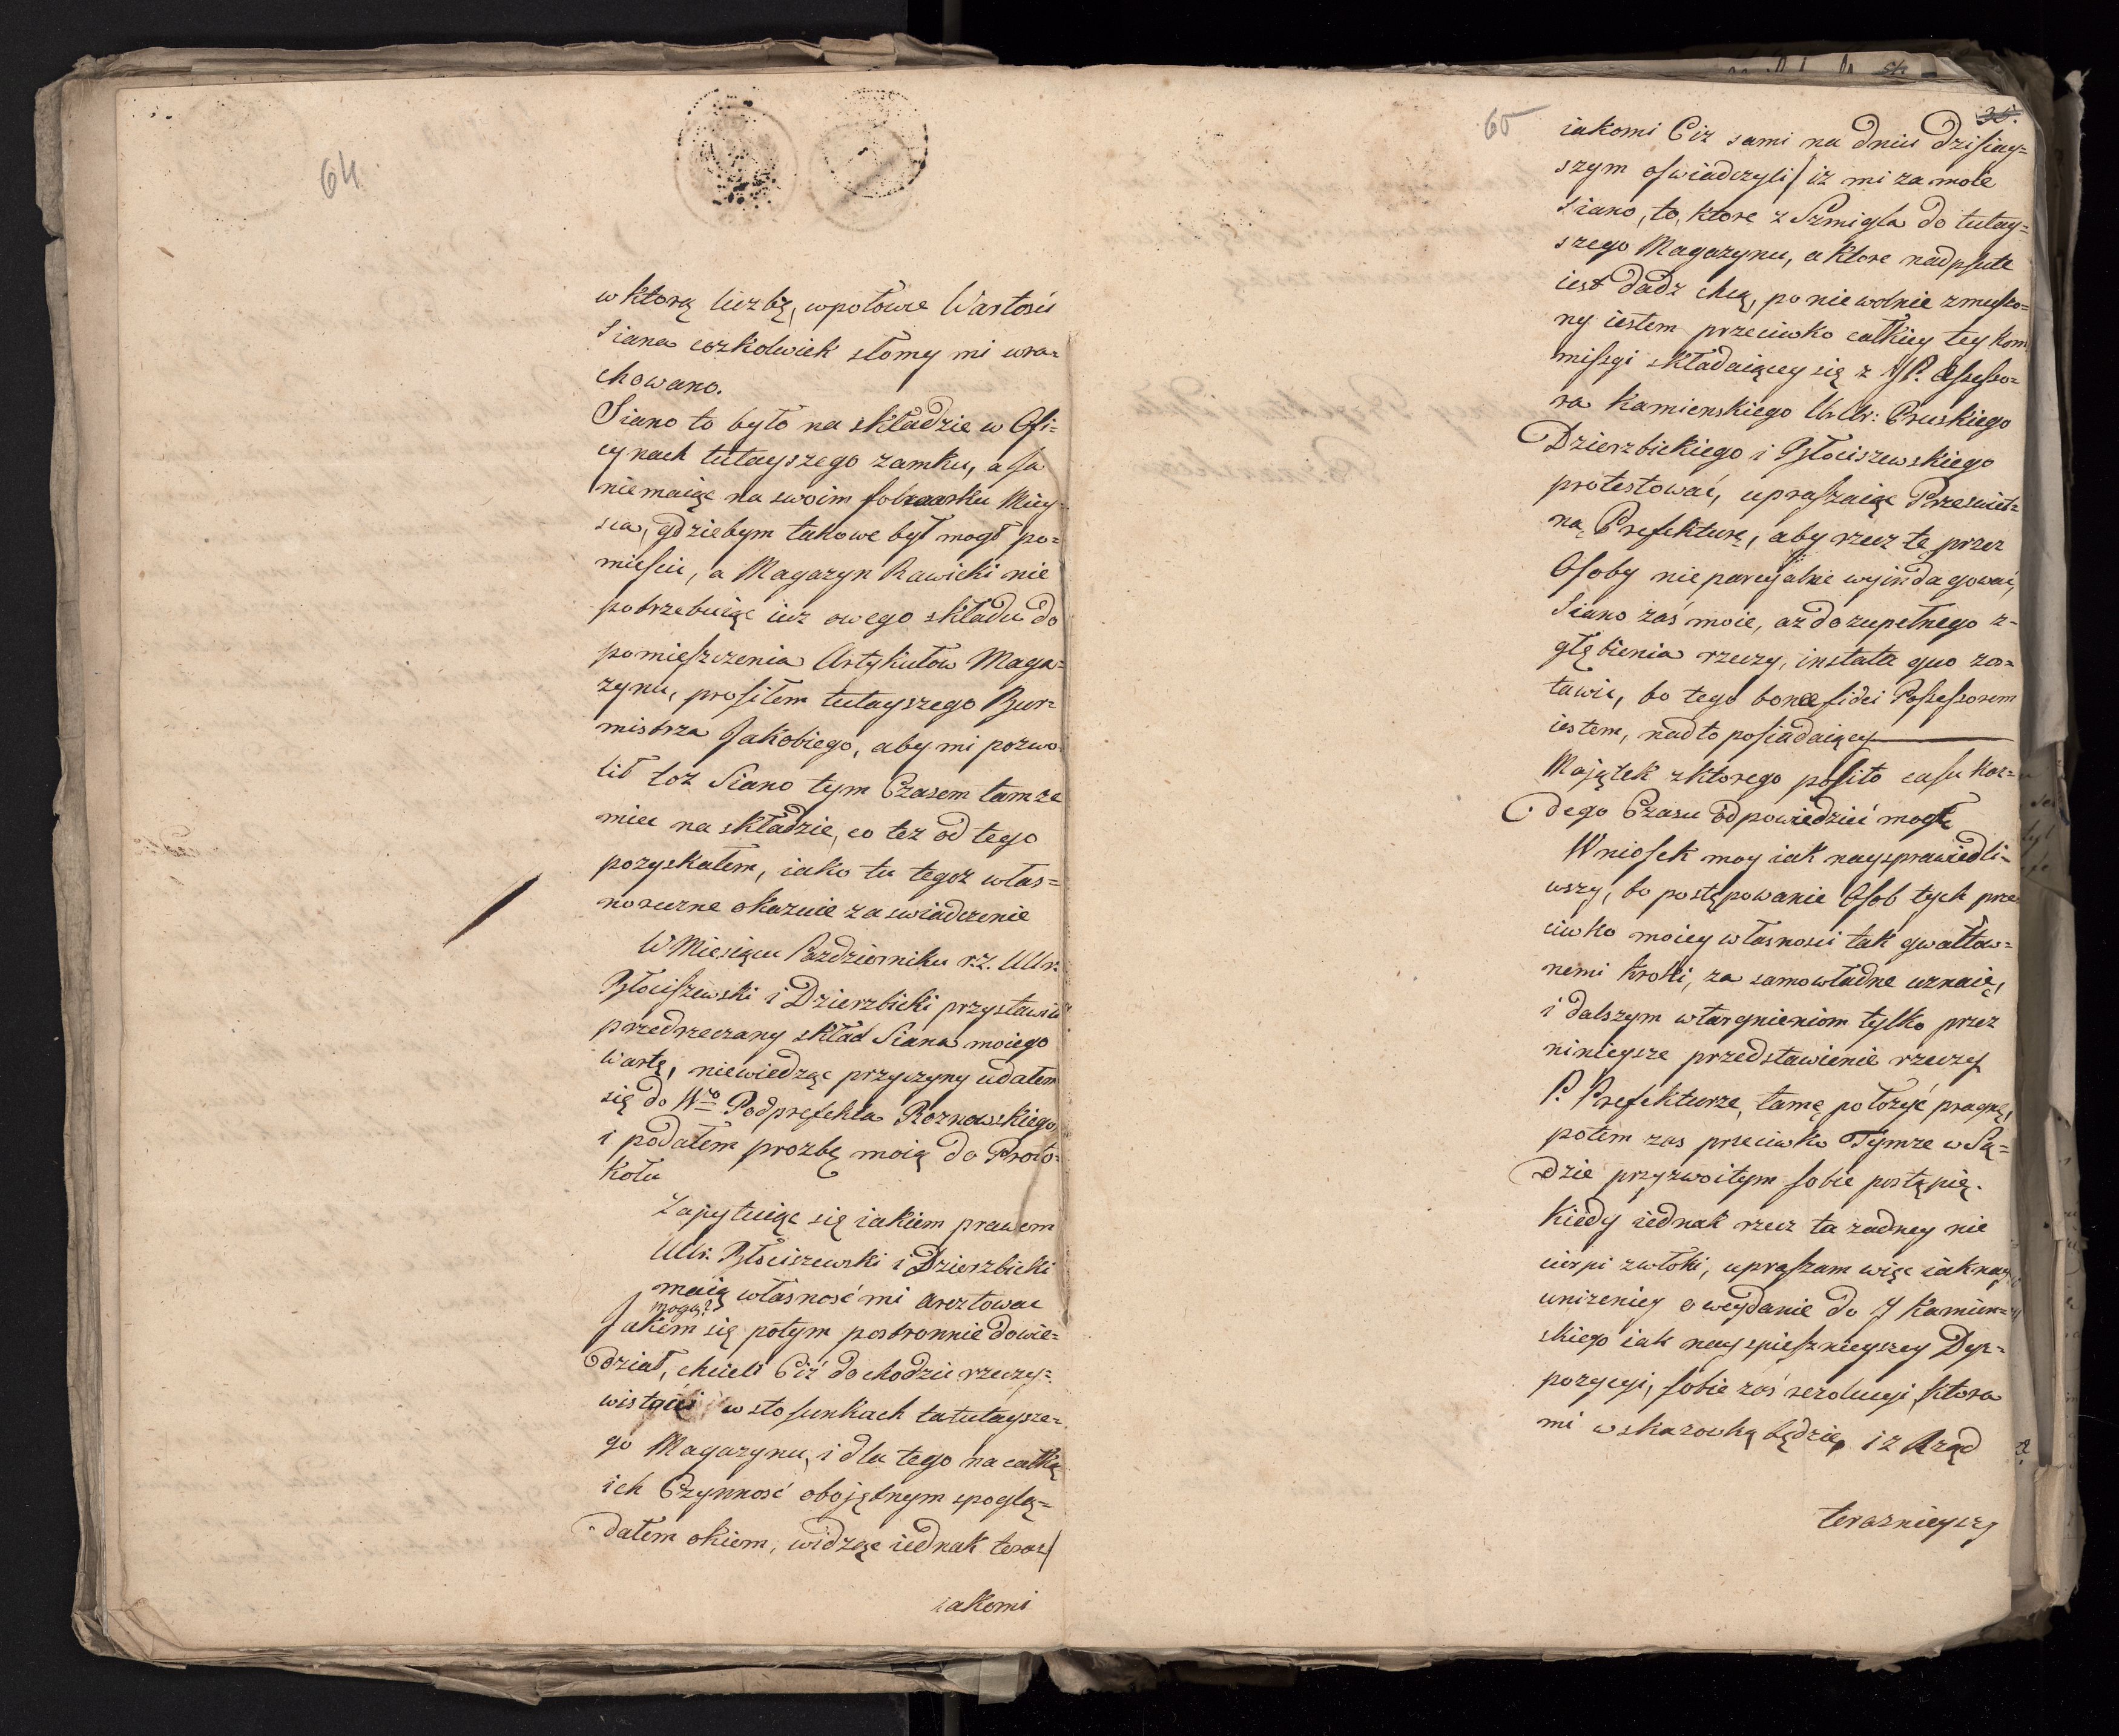 64
w ktorą liczbę, wpołowie Wartosci
Siana cozkolwiek słomy mi wra-
chowano.
Siano to było na składzie w Ofi=
cynach tutayszego zamku, a ja
niemaiąc na swoim folwarku Miey-
sca, gdziebym takowe był mogł po=
mieścić, a Magazyn Rawicki nie
potrzebuiąc iuz owego składu do
pomieszczenia Artykułow Maga=
zynu, prosiłem tutayszego Bur=
mistrza Jakobiego, aby mi pozwo-
lił toz Siano tym Czasem tamze
miec na składzie, co tez od tego
pozyskałem, iako tu tegoz włas=
noręczne okazuie zaswiadczenie
W Miesiącu Pazdzierniku r.z. UUr.
Błociszewski i Dzierzbicki przystawili
przedrzeczany skład Siana moiego
Wartę, niewiedząc przyczyny udałem
się do Wgo Podprefekta Roznowskiego,
i podałem prozbę moię do Proto=
kołu
Zapytuiąc się iakiem prawem
UUr. Błociszewski i Dzierzbicki
maią własność mi aresztowac
mogą?
Jakem się potym postronnie dowie=
dział, chcieli Ciż dochodzic rzeczy=
wistości w stosunkach tutaysze=
go Magazynu, i dla tego na całką
ich Czynnosć obojętnym spoglą=
dałem okiem, widząc iednak teraz/
iakomi
65
35.
iakomi Ciz sami na dniu dzisiay=
szym oswiadczyli/ iz mi za moie
Siano, to, ktore z Szmigla do tutay=
szego Magazynu, a ktore nadpsute
iest dadz chcą, poniewolnie zmuszo=
ny iestem przeciwko całkiey tey Kom
missyi składaiącey się z JP. Assesso=
ra Kamienskiego UUr: Pruskiego
Dzierzbickiego i Błociszewskiego
protestować, upraszaiąc Przeswiet=
ną Prefekturę, aby rzecz tę przez
Osoby nieparcyalnie wyindagować,
Siano zaś moie, az do zupełnego z-
głębienia rzeczy, in stata quo zos=
tawić, bo tego bonae fidei Possessorem
iestem, nadto posiadaiący
Majątek z ktorego posito casu kaz=
dego Czasu odpowiedzieć mogę
Wniosek moy iak naysprawiedli=
wszy, bo postępowanie Osob tych prze
ciwko moiey własnosci tak gwałtow=
nemi kroki, za samowładne uznaię,
i dalszym wtargnieniom tylko przez
ninieysze przedstawienie rzeczy
P. Prefekturze, tamę położyć pragnę,
potem zas przeciwko Tymze w Są=
dzie przyzwoitym sobie postąpię.
Kiedy iednak rzecz ta zadney nie
cierpi zwłoki, upraszam więc iaknay
unizeniey o wydanie do J Kamien=
skiego iak nayspieszneyszey Dys=
pozycyi, sobie zaś rezolucyi, ktora
mi wskazowką będzie, iz Rząd
teraznieyszy